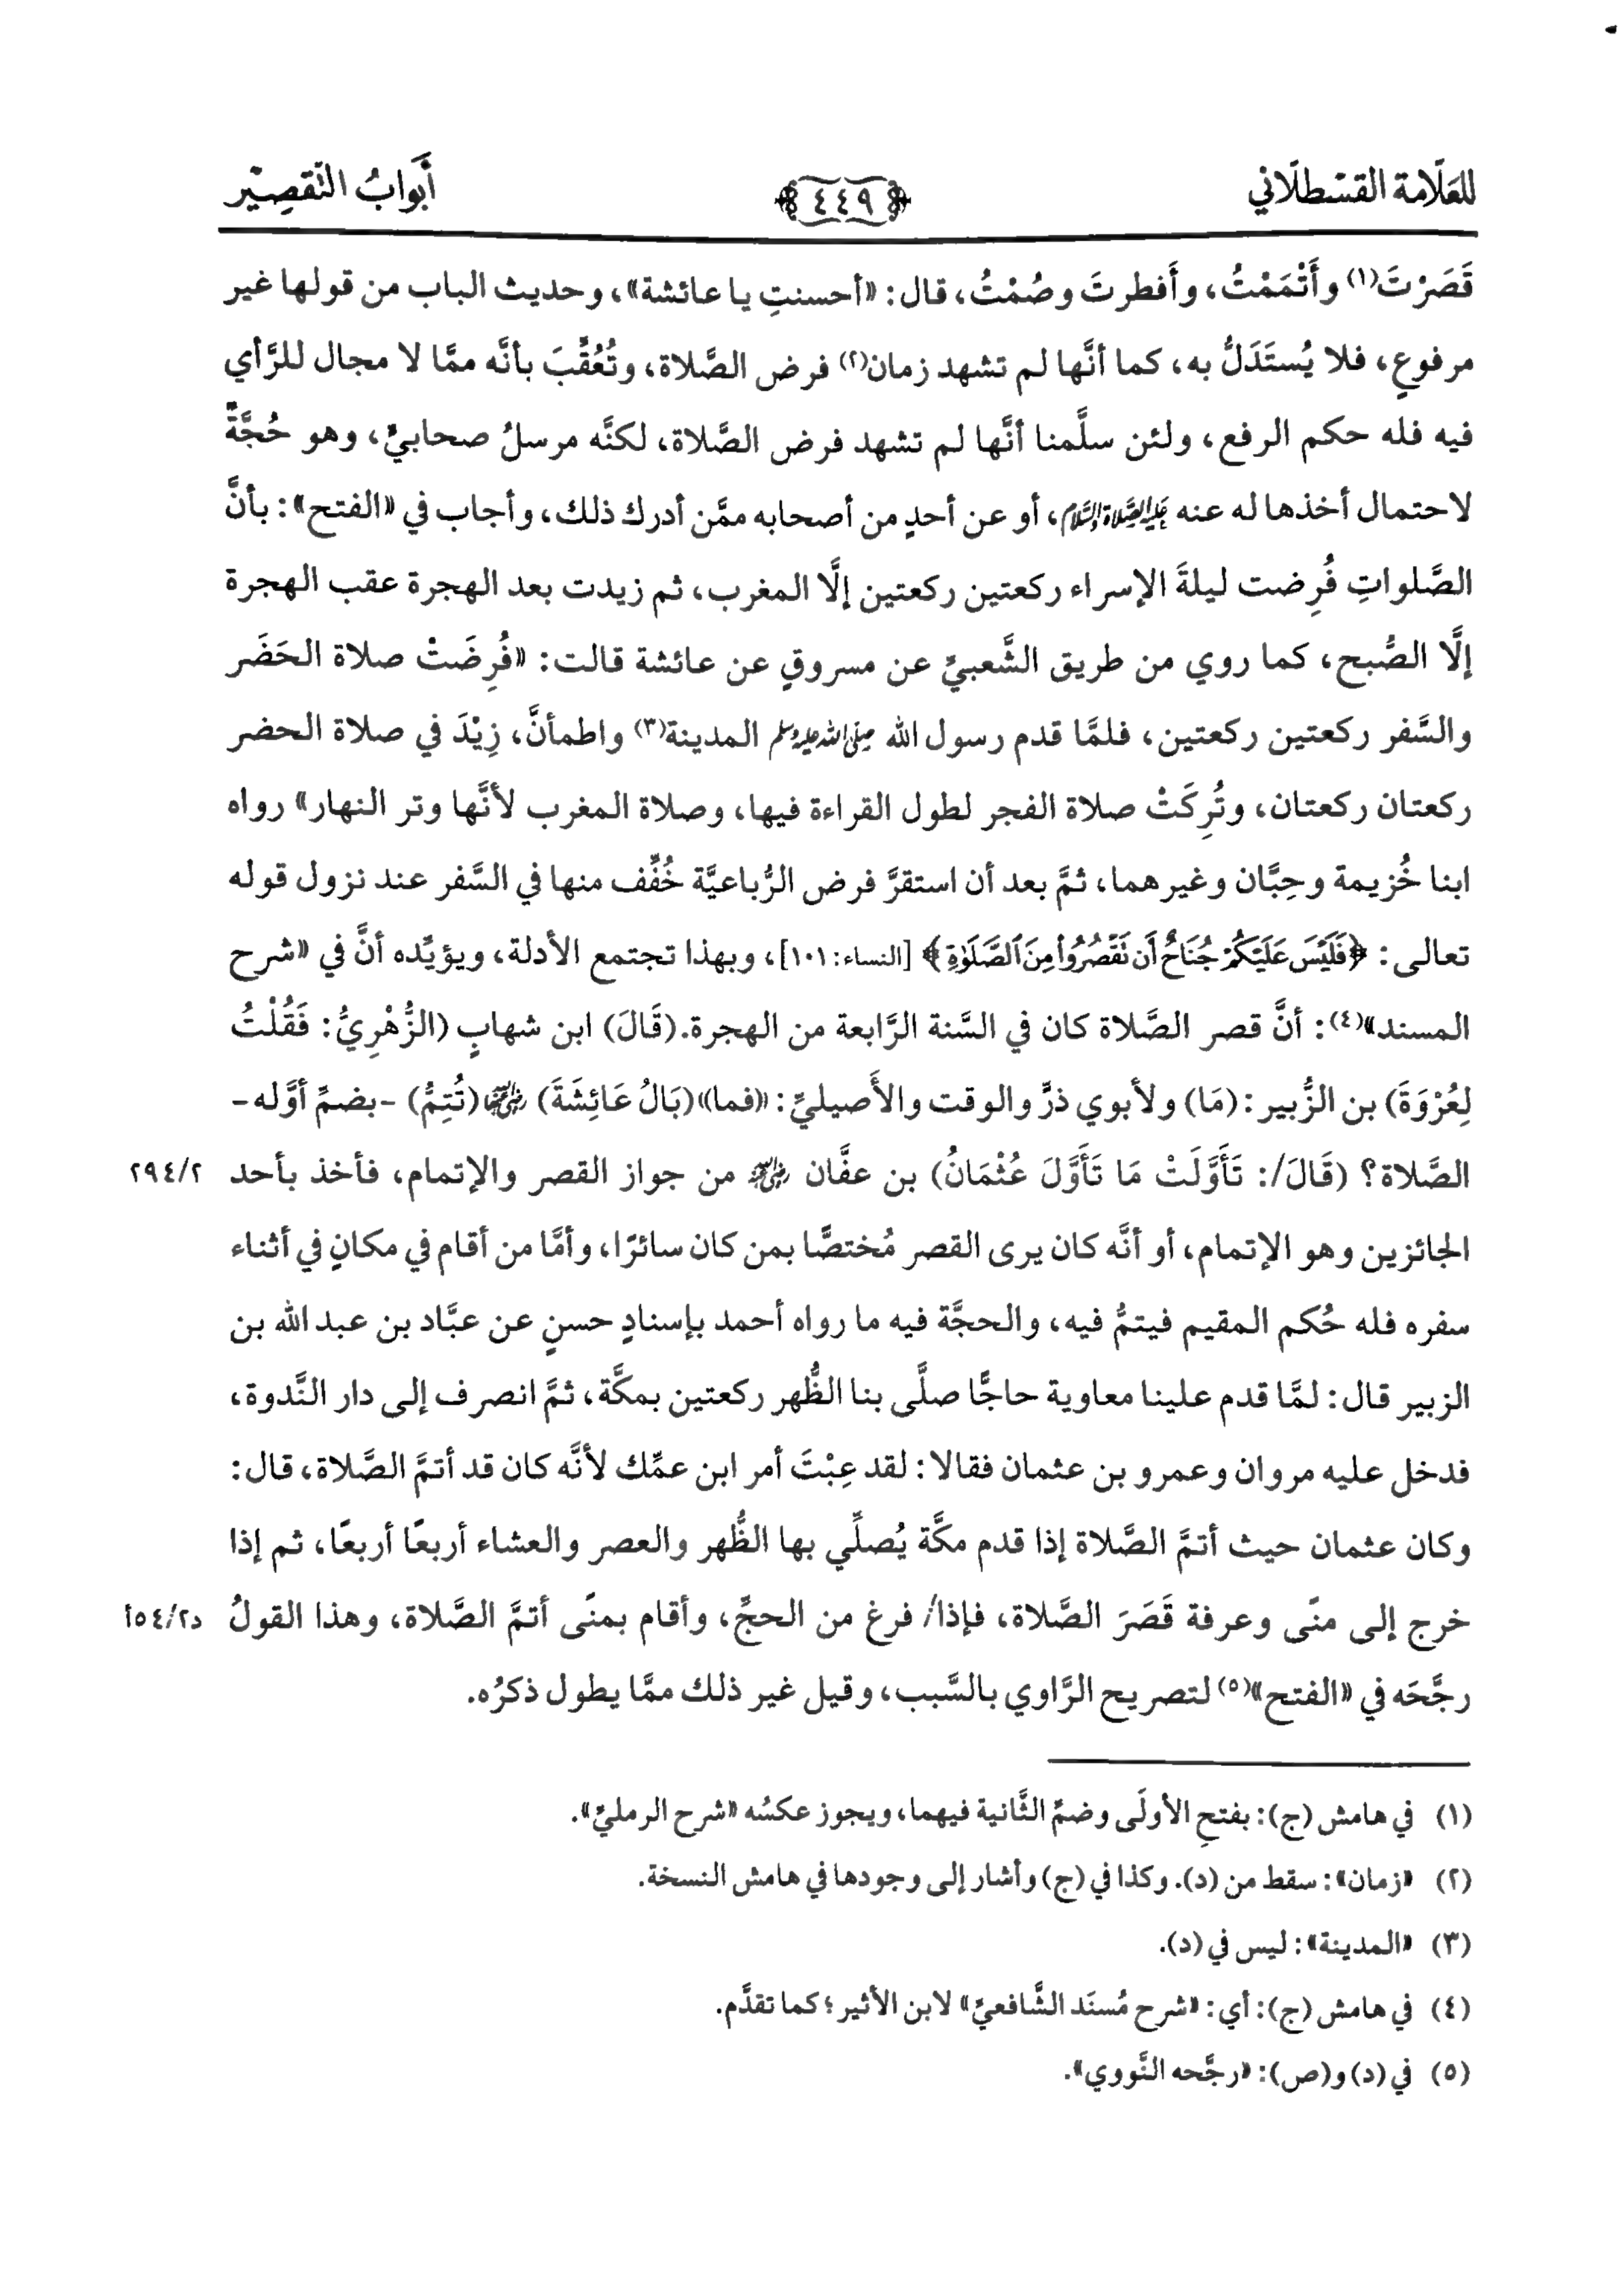 للعلامة القسطلاني
﴿٤٤٩﴾
أبواب التقصير
قَصَرْتَ(١) وأَتْمَمْتُ، وأَفطرتَ وصُمْتُ، قال: «أحسنتِ يا عائشة»، وحديث الباب من قولها غير
مرفوعٍ، فلا يُستَدَلُّ به، كما أنَّها لم تشهد زمان(٢) فرض الصَّلاة، وتُعُقِّبَ بأنَّه ممَّا لا مجال للرَّأي
فيه فله حكم الرفع، ولئن سلَّمنا أنَّها لم تشهد فرض الصَّلاة، لكنَّه مرسلُ صحابيٍّ، وهو حُجَّةٌ
لاحتمال أخذها له عنه عليه الصلاة والسلام، أو عن أحدٍ من أصحابه ممَّن أدرك ذلك، وأجاب في «الفتح»: بأنَّ
الصَّلواتِ فُرِضت ليلةَ الإسراء ركعتين ركعتين إلَّا المغرب، ثم زيدت بعد الهجرة عقب الهجرة
إلَّا الصُّبح، كما روي من طريق الشَّعبيِّ عن مسروقٍ عن عائشة قالت: «فُرِضَتْ صلاة الحَضَر
والسَّفر ركعتين ركعتين، فلمَّا قدم رسول الله صلى الله عليه وسلم المدينة(٣) واطمأنَّ، زِيْدَ في صلاة الحضر
ركعتان ركعتان، وتُرِكَتْ صلاة الفجر لطول القراءة فيها، وصلاة المغرب لأنَّها وتر النهار» رواه
ابنا خُزيمة وحِبَّان وغيرهما، ثمَّ بعد أن استقرَّ فرض الرُّباعيَّة خُفِّف منها في السَّفر عند نزول قوله
تعالى: ﴿فَلَيْسَ عَلَيْكُمْ جُنَاحٌ أَن نَقْصُرُوا۟ مِنَ ٱلصَّلَوٰةِ﴾ [النساء: ١٠١]، وبهذا تجتمع الأدلة، ويؤيِّده أنَّ في «شرح
المسند»(٤): أنَّ قصر الصَّلاة كان في السَّنة الرَّابعة من الهجرة. (قَالَ) ابن شهابٍ (الزُّهْرِيُّ: فَقُلْتُ
لِعُرْوَةَ) بن الزُّبير: (مَا) ولأبوي ذرٍّ والوقت والأَصيليِّ: «فما» (بَالُ عَائِشَةَ) رضي الله عنها (تُتِمُّ) -بضمِّ أوَّله-
الصَّلاة؟ (قَالَ/: تَأَوَّلَتْ مَا تَأَوَّلَ عُثْمَانُ) بن عفَّان رضي الله عنه من جواز القصر والإتمام، فأخذ بأحد ٢٩٤/٢
الجائزين وهو الإتمام، أو أنَّه كان يرى القصر مُختصًّا بمن كان سائرًا، وأمَّا من أقام في مكانٍ في أثناء
سفره فله حُكم المقيم فيتمُّ فيه، والحجَّة فيه ما رواه أحمد بإسنادٍ حسنٍ عن عبَّاد بن عبد الله بن
الزبير قال: لمَّا قدم علينا معاوية حاجًّا صلَّى بنا الظُّهر ركعتين بمكَّة، ثمَّ انصرف إلى دار النَّدوة،
فدخل عليه مروان وعمرو بن عثمان فقالا: لقد عِبْتَ أمر ابن عمِّك لأنَّه كان قد أتمَّ الصَّلاة، قال:
وكان عثمان حيث أتمَّ الصَّلاة إذا قدم مكَّة يُصلِّي بها الظُّهر والعصر والعشاء أربعًا أربعًا، ثم إذا
خرج إلى منًى وعرفة قَصَرَ الصَّلاة، فإذا/ فرغ من الحجِّ، وأقام بمنًى أتمَّ الصَّلاة، وهذا القولُ د٥٤/٢أ
رجَّحَه في «الفتح»(٥) لتصريح الرَّاوي بالسَّبب، وقيل غير ذلك ممَّا يطول ذكرُه.
(١) في هامش (ج): بفتحِ الأولَى وضمِّ الثَّانية فيهما، ويجوز عكسُه «شرح الرمليِّ».
(٢) «زمان»: سقط من (د). وكذا في (ج) وأشار إلى وجودها في هامش النسخة.
(٣) «المدينة»: ليس في (د).
(٤) في هامش (ج): أي: «شرح مُسنَد الشَّافعيِّ» لابن الأثير؛ كما تقدَّم.
(٥) في (د) و(ص): «رجَّحه النَّووي».